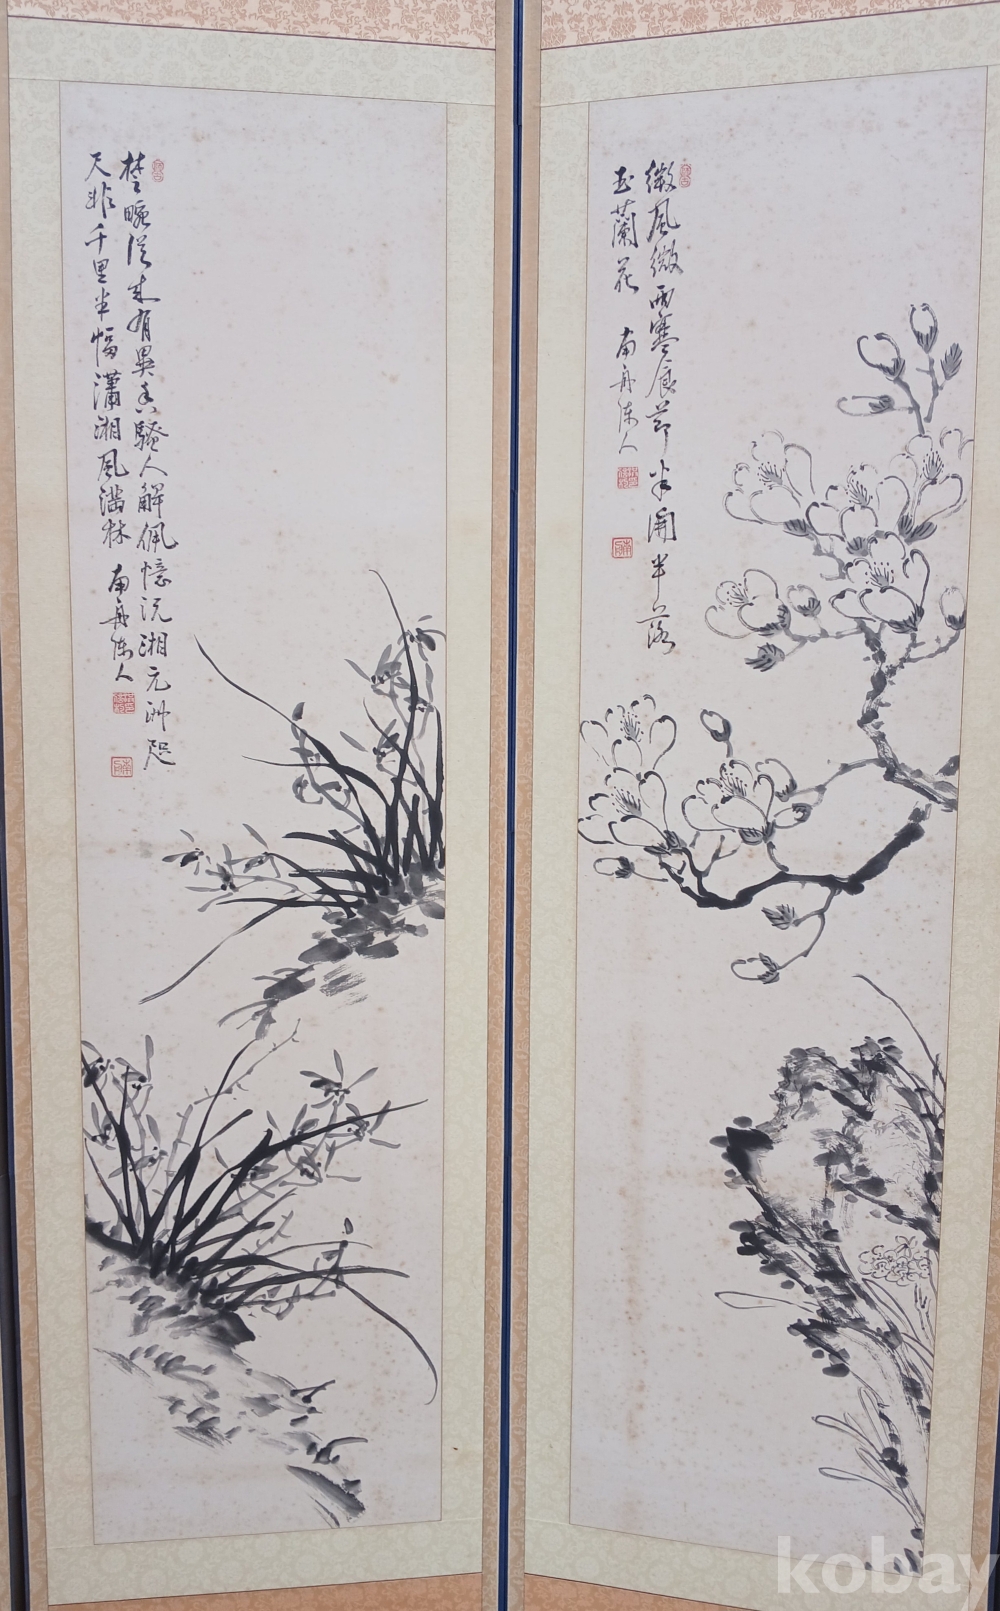 微風微雨寒食節半開半落
玉蘭花 南舟陳人
楚畹從來有異香騷人解佩憶沅湘元洲咫
尺非千里半幅瀟湘風滿林 南舟陳人
kobay